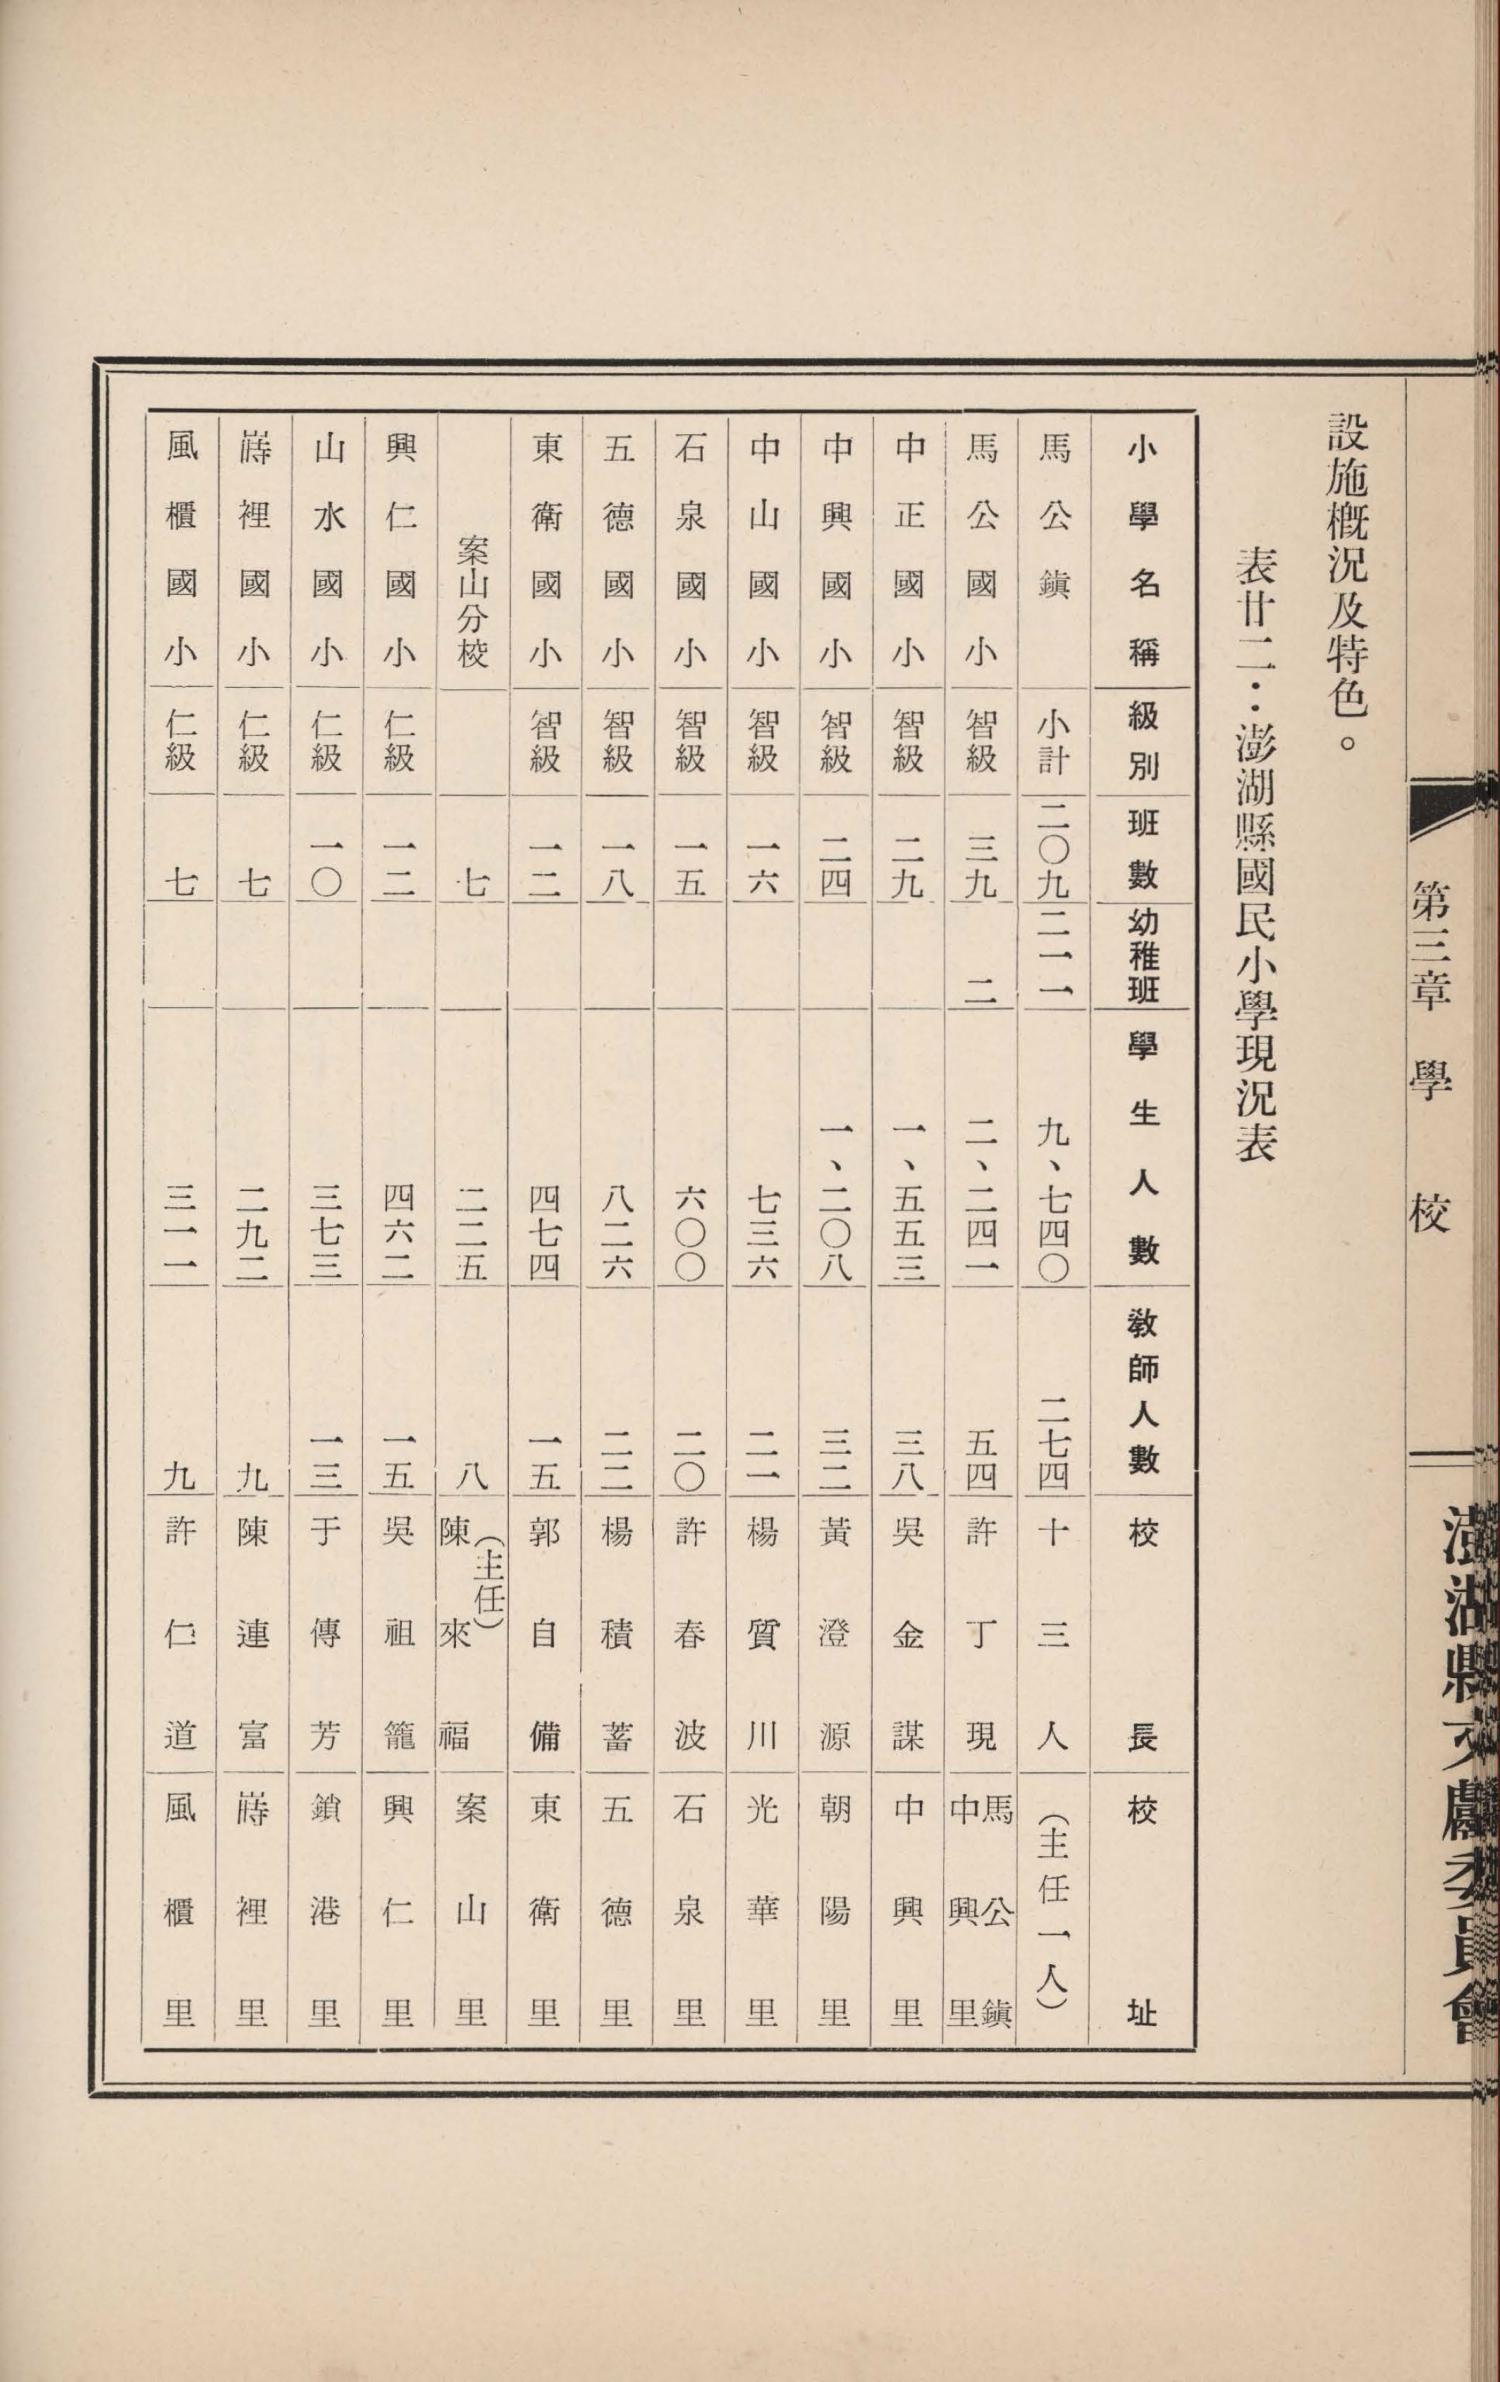 第三章　學　校
澎湖縣文獻委員會
設施概況及特色。
表廿二：澎湖縣國民小學現況表
小學名稱　級別　班數　幼稚班　學生人數　教師人數　校長　校址
馬公鎮　小計　二〇九　二一一　九、七四〇　二七四　十三人　（主任一人）
馬公國小　智級　三九　二　二、二四一　五四　許丁現　馬公鎮中興里
中正國小　智級　二九　一、五五三　三八　吳金謀　中興里
中興國小　智級　二四　一、二〇八　三二　黃澄源　朝陽里
中山國小　智級　一六　七三六　二一　楊質川　光華里
石泉國小　智級　一五　六〇〇　二〇　許春波　石泉里
五德國小　智級　一八　八二六　二二　楊積蓄　五德里
東衛國小　智級　一二　四七四　一五　郭自備　東衛里
案山分校　七　二二五　八　（主任）陳來福　案山里
興仁國小　仁級　一二　四六二　一五　吳祖籠　興仁里
山水國小　仁級　一〇　三七三　一三　于傳芳　鎖港里
蒔裡國小　仁級　七　二九二　九　陳連富　蒔裡里
風櫃國小　仁級　七　三一一　九　許仁道　風櫃里